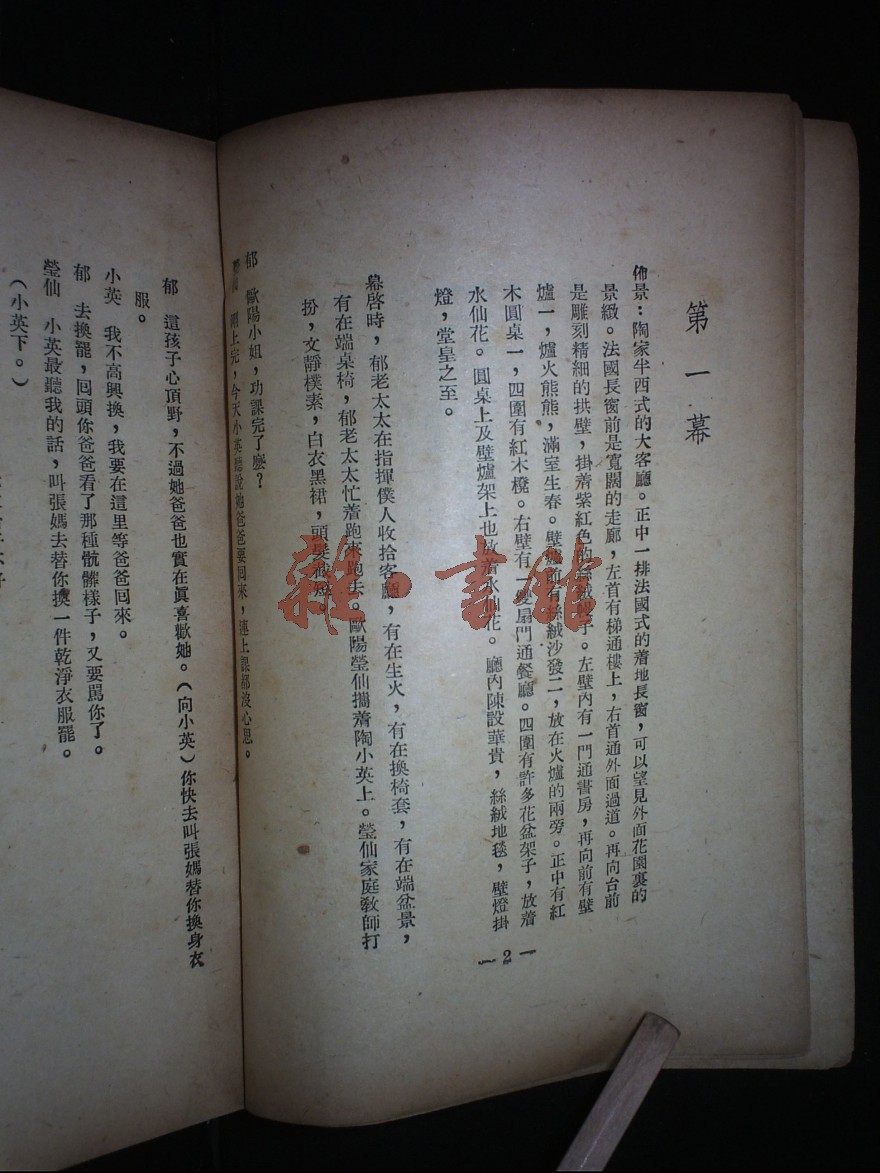 第一幕
佈景：陶家半西式的大客廳。正中一排法國式的着地長窗，可以望見外面花園裏的
景緻。法國長窗前是寬闊的走廊，左首有梯通樓上，右首通外面過道。再向台前
是雕刻精細的拱壁，掛着紫紅色的絲絨幔子。左壁內有一門通書房，再向前有壁
爐一，爐火熊熊，滿室生春。壁爐前有絲絨沙發二，放在火爐的兩旁。正中有紅
木圓桌一，四圍有紅木櫈。右壁有一雙扇門通餐廳。四圍有許多花盆架子，放着
水仙花。圓桌上及壁爐架上也放着水仙花。廳內陳設華貴，絲絨地毯，壁燈掛
燈，堂皇之至。
幕啓時，郁老太太在指揮僕人收拾客廳，有在生火，有在換椅套，有在端盆景，
有在端桌椅，郁老太太忙着跑來跑去。歐陽瑩仙攜着陶小英上。瑩仙家庭教師打
扮，文靜樸素，白衣黑裙，頭髮截短。
— 2 —
郁　歐陽小姐，功課完了麽？
瑩仙　剛上完，今天小英聽說她爸爸要回來，連上課都沒心思。
郁　這孩子心頂野，不過她爸爸也實在眞喜歡她。（向小英）你快去叫張媽替你換身衣
服。
小英　我不高興換，我要在這里等爸爸囘來。
郁　去換罷，囘頭你爸爸看了那種骯髒樣子，又要駡你了。
瑩仙　小英最聽我的話，叫張媽去替你換一件乾淨衣服罷。
（小英下。）
雜·書館